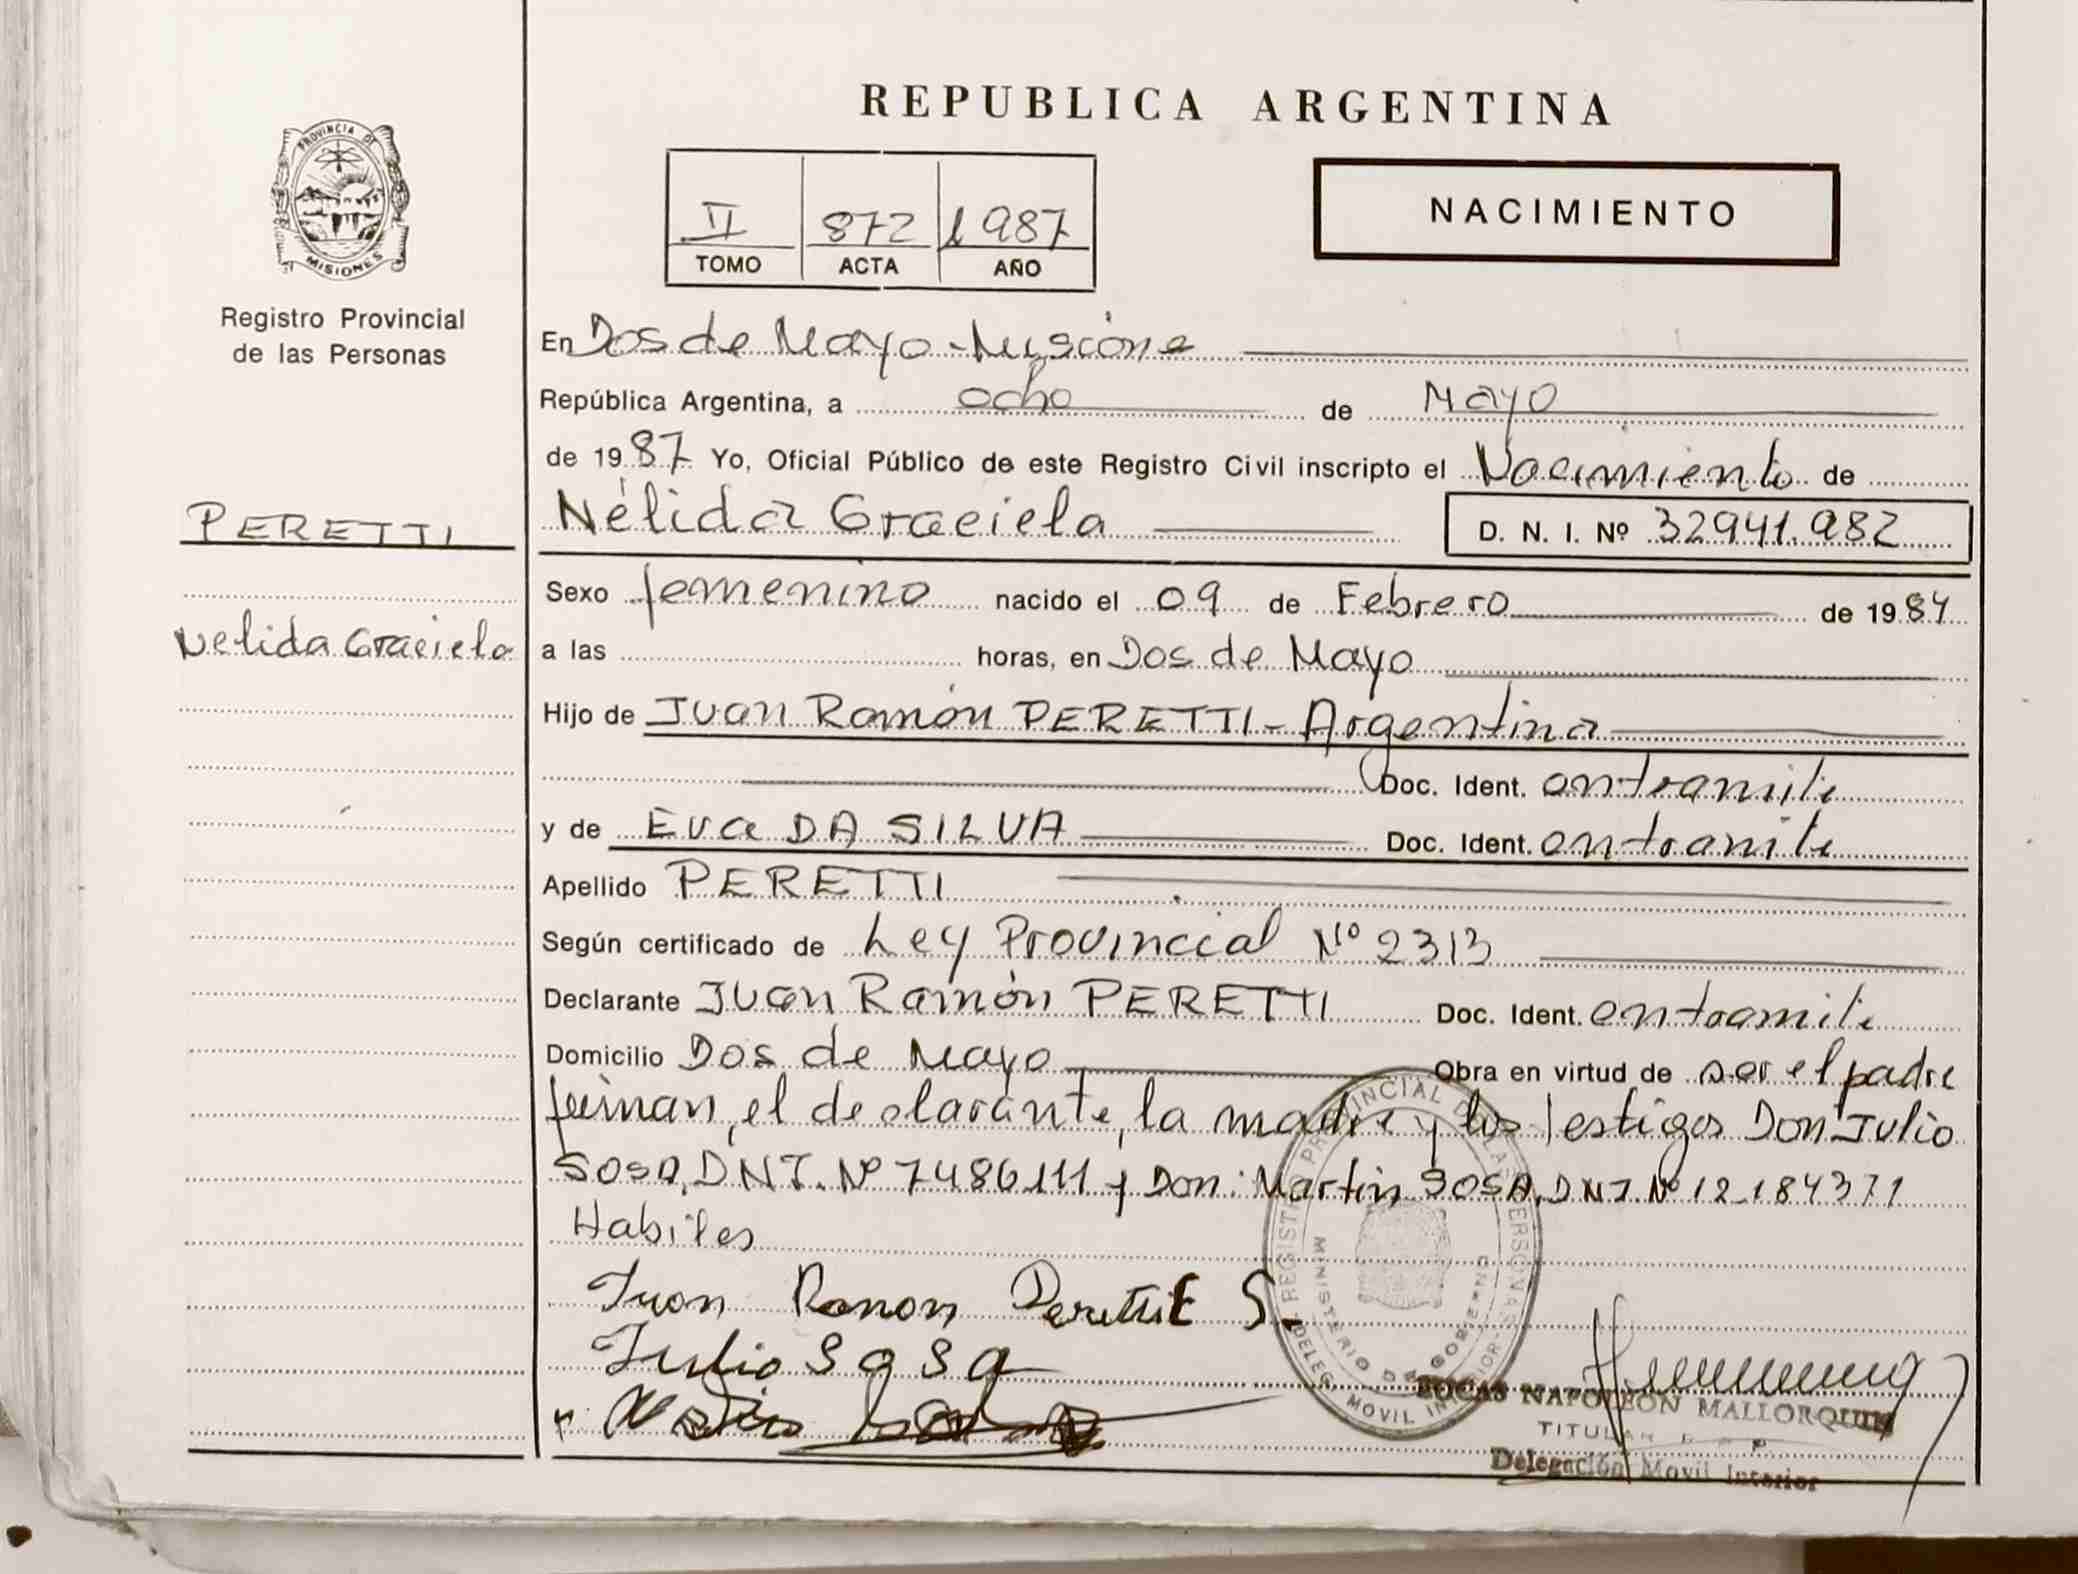 REPUBLICA ARGENTINA
PROVINCIA DE
MISIONES
Registro Provincial
de las Personas
II 872 1987
TOMO ACTA AÑO
NACIMIENTO
En Dos de Mayo - Misiones
República Argentina, a ocho de Mayo
de 1987 Yo, Oficial Público de este Registro Civil inscripto el Nacimiento de
PERETTI
Nélida Graciela D. N. I. Nº 32941.982
Sexo femenino nacido el 09 de Febrero de 1984
Nelida Graciela
a las horas, en Dos de Mayo
Hijo de Juan Ramón PERETTI - Argentina
Doc. Ident. entramite
y de Eva DA SILVA Doc. Ident. entramite
Apellido PERETTI
Según certificado de Ley Provincial Nº 2313
Declarante Juan Ramón PERETTI Doc. Ident. entramite
Domicilio Dos de Mayo Obra en virtud de ser el padre
firman, el declarante, la madre y los testigos Don Julio
SOSA, DNI. Nº 7486111 y Don: Martin SOSA, DNI Nº 12.184371
Habiles
Juan Ramon S.
Julio Sosa
REGISTRO PROVINCIAL DE LAS PERSONAS
MINISTERIO DE GOBIERNO
DELEG. MOVIL INTERIOR
NAPOLEON MALLORQUIN
TITULAR
Delegación Movil Interior